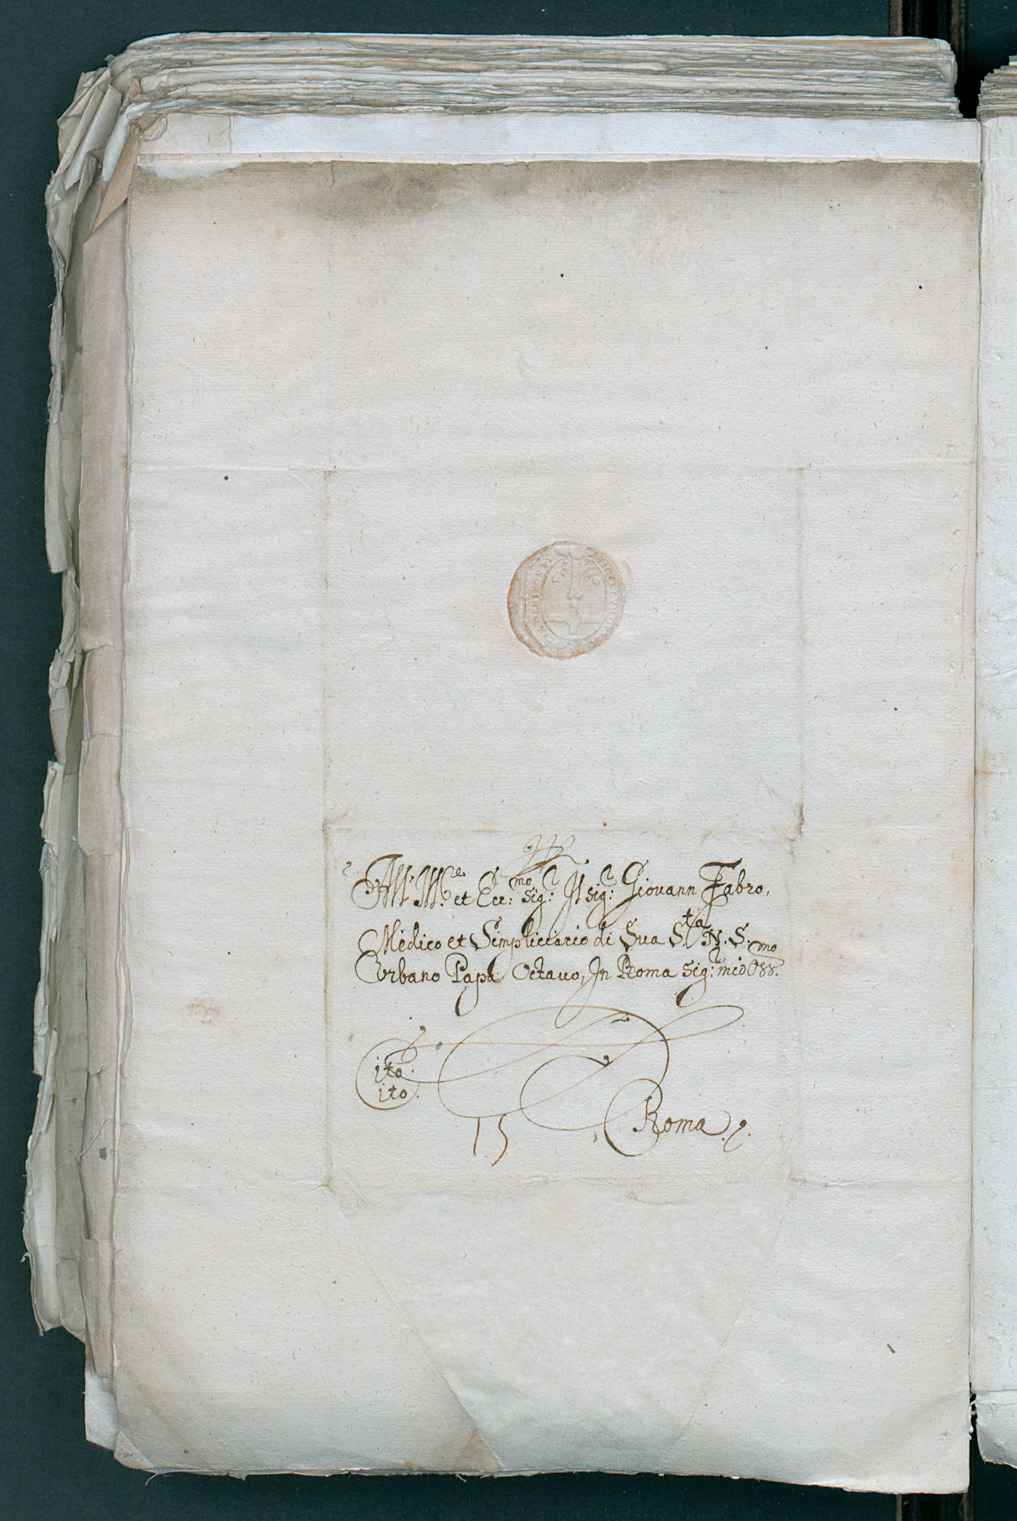 All' Ill.re et Ecc:mo Sig:r Il sig:r Giovann Fabro,
Medico et Simpliciario di Sua S.ta N. S.
Vrbano Papa Octavo, In Roma Sig:r mio Oss.mo
Cito.
ito.
15
Roma